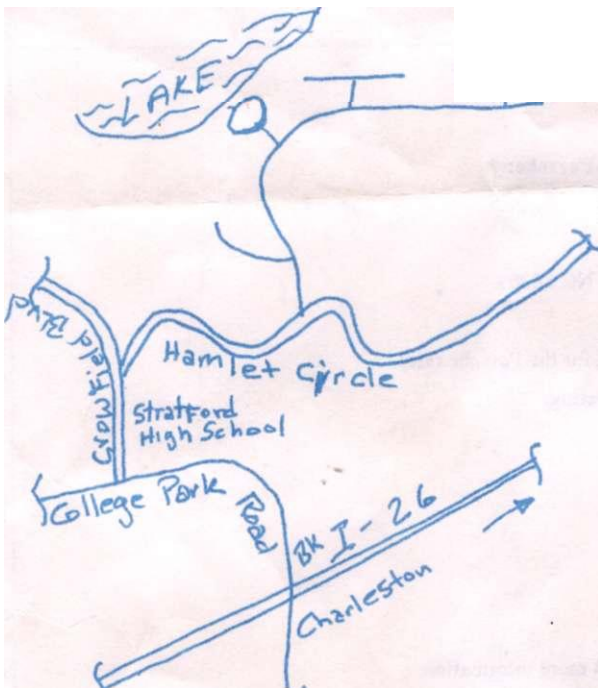 LAKE
CrowField Blvd
Hamlet Circle
Stratford
High School
College Park
Road
BK I-26
Charleston